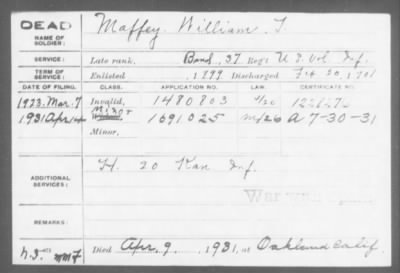 DEAD
NAME OF SOLDIER:
Maffey, William T
SERVICE:
Late rank, Band, 37 Reg't U.S. Vol. Inf.
TERM OF SERVICE:
Enlisted 1899 Discharged Feb 20, 1901
DATE OF FILING. CLASS. APPLICATION NO. LAW. CERTIFICATE NO.
1923 Mar. 7 Invalid, 1480803
1931 Apr 14 Minor 1691025 A 7-30-31
Minor,
ADDITIONAL SERVICES:
H. 20 Kan Inf.
War
REMARKS:
Died Apr. 9, 1931, at Oakland Calif.